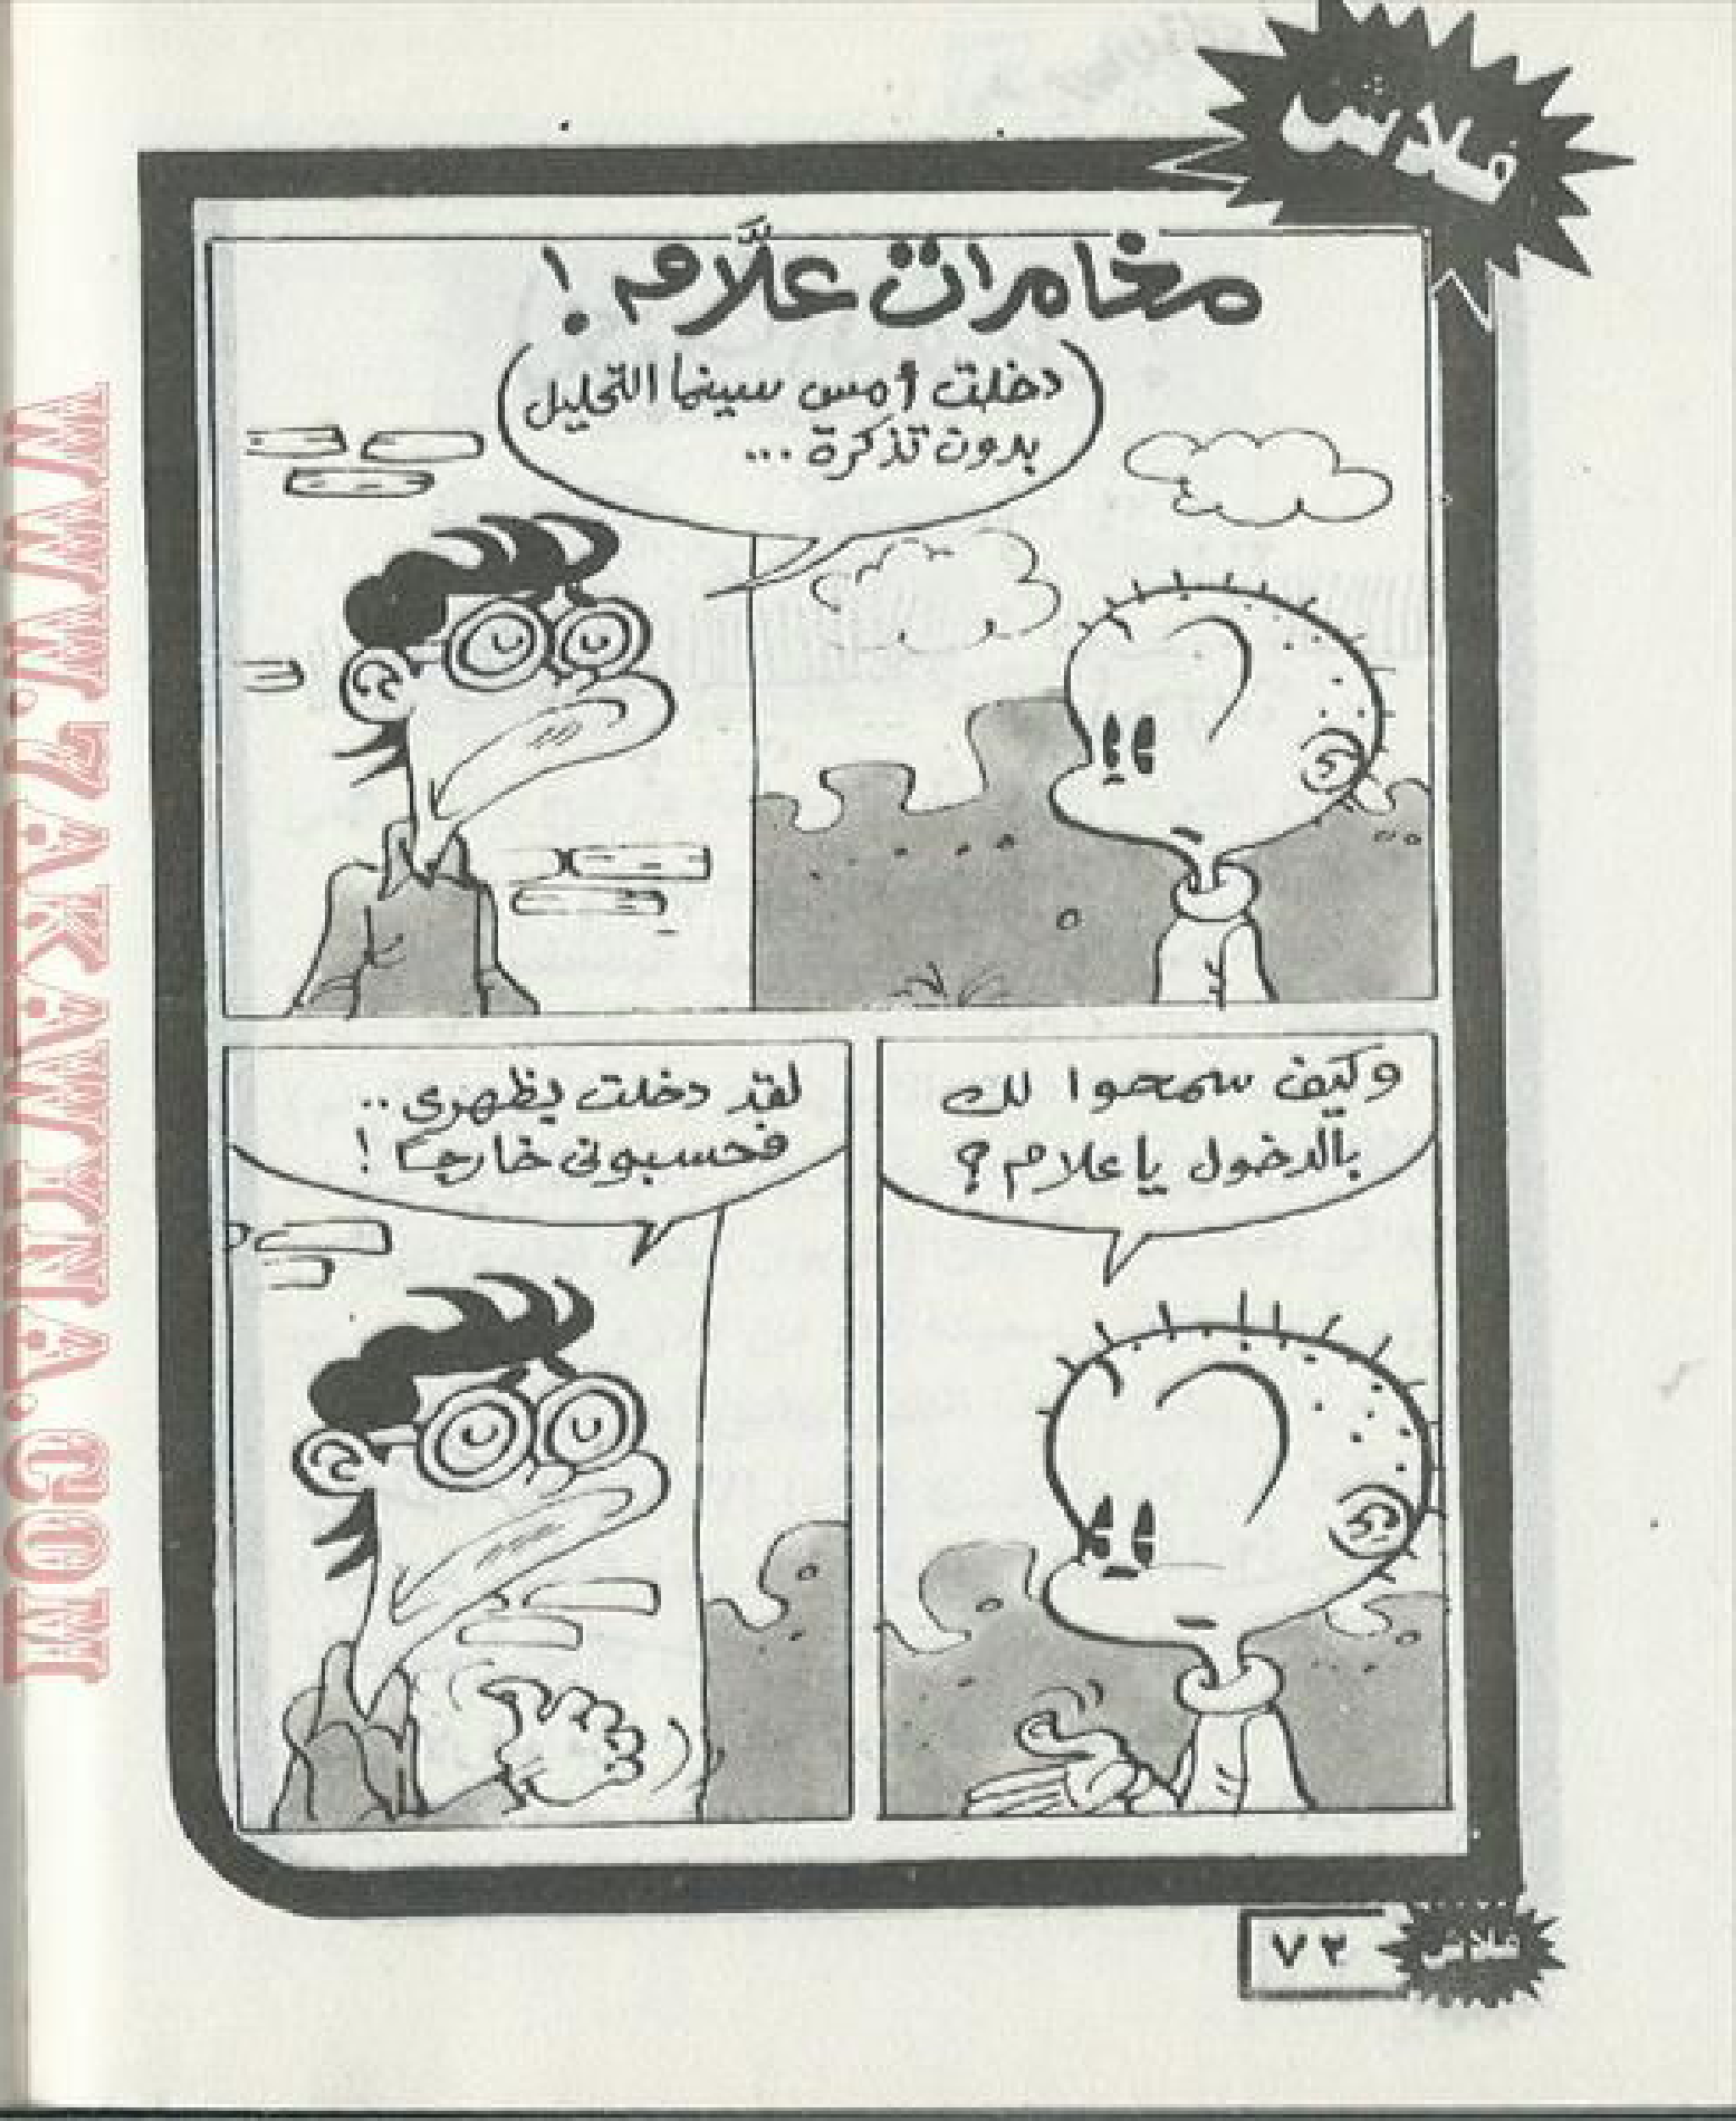 فلاش
مغامرات علَّام !
دخلت أمس سينما التحليل
بدون تذكرة ...
وكيف سمحوا لك
بالدخول يا علام ؟
لقد دخلت بظهرى ..
فحسبونى خارجـًا !
٧٢
فلاش
WWW.7AKAWITNA.COM